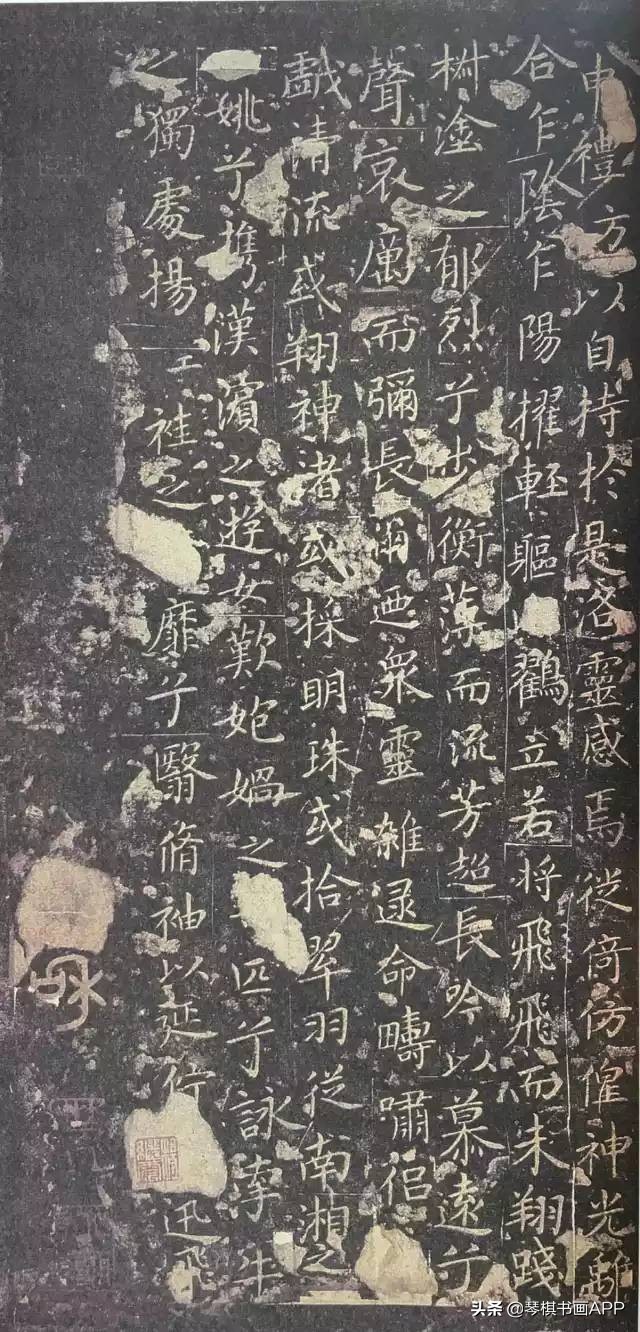 申禮方以自持於是洛靈感焉徙倚仿偟神光離
合乍陰乍陽擢輕軀以鶴立若將飛飛而未翔踐
椒塗之郁烈兮步衡薄而流芳超長吟以慕遠兮
聲哀厲而彌長爾迺衆靈雜遝命疇嘯侶
戲清流或翔神渚或採明珠或拾翠羽從南湘之
姚兮攜漢濱之遊女歎匏媧之匹兮詠牽牛
之獨處揚袿之靡兮翳脩袖以延佇迅飛
头条 @琴棋书画APP